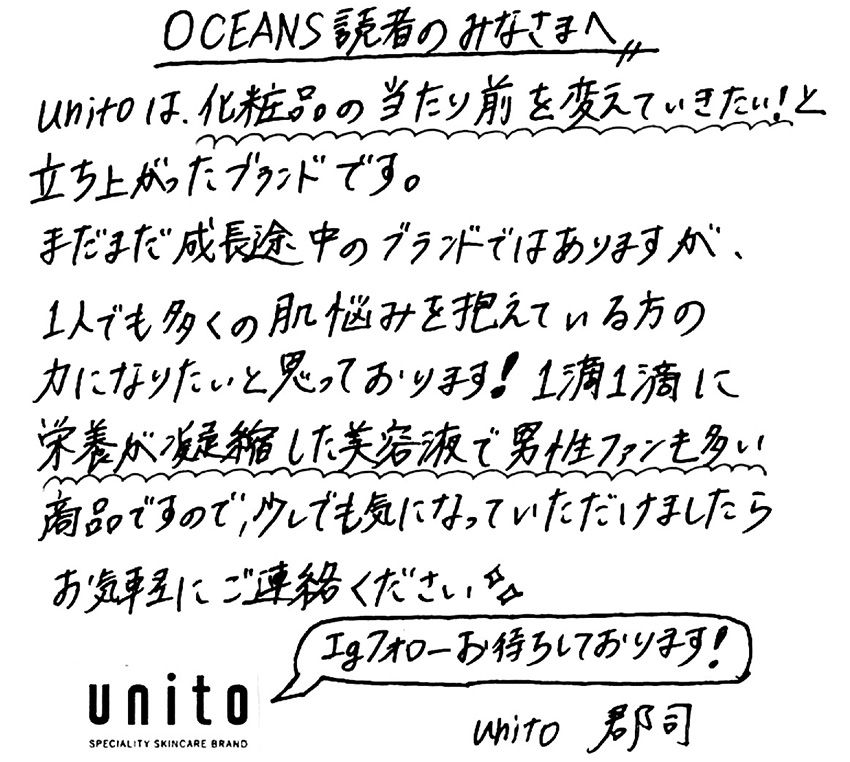 OCEANS読者のみなさまへ
unitoは、化粧品の当たり前を変えていきたい!と
立ち上がったブランドです。
まだまだ成長途中のブランドではありますが、
1人でも多くの肌悩みを抱えている方の
力になりたいと思っております!1滴1滴に
栄養が凝縮した美容液で男性ファンも多い
商品ですので、少しでも気になっていただけましたら
お気軽にご連絡ください
Igフォローお待ちしております!
unito
SPECIALITY SKINCARE BRAND
unito 郡司